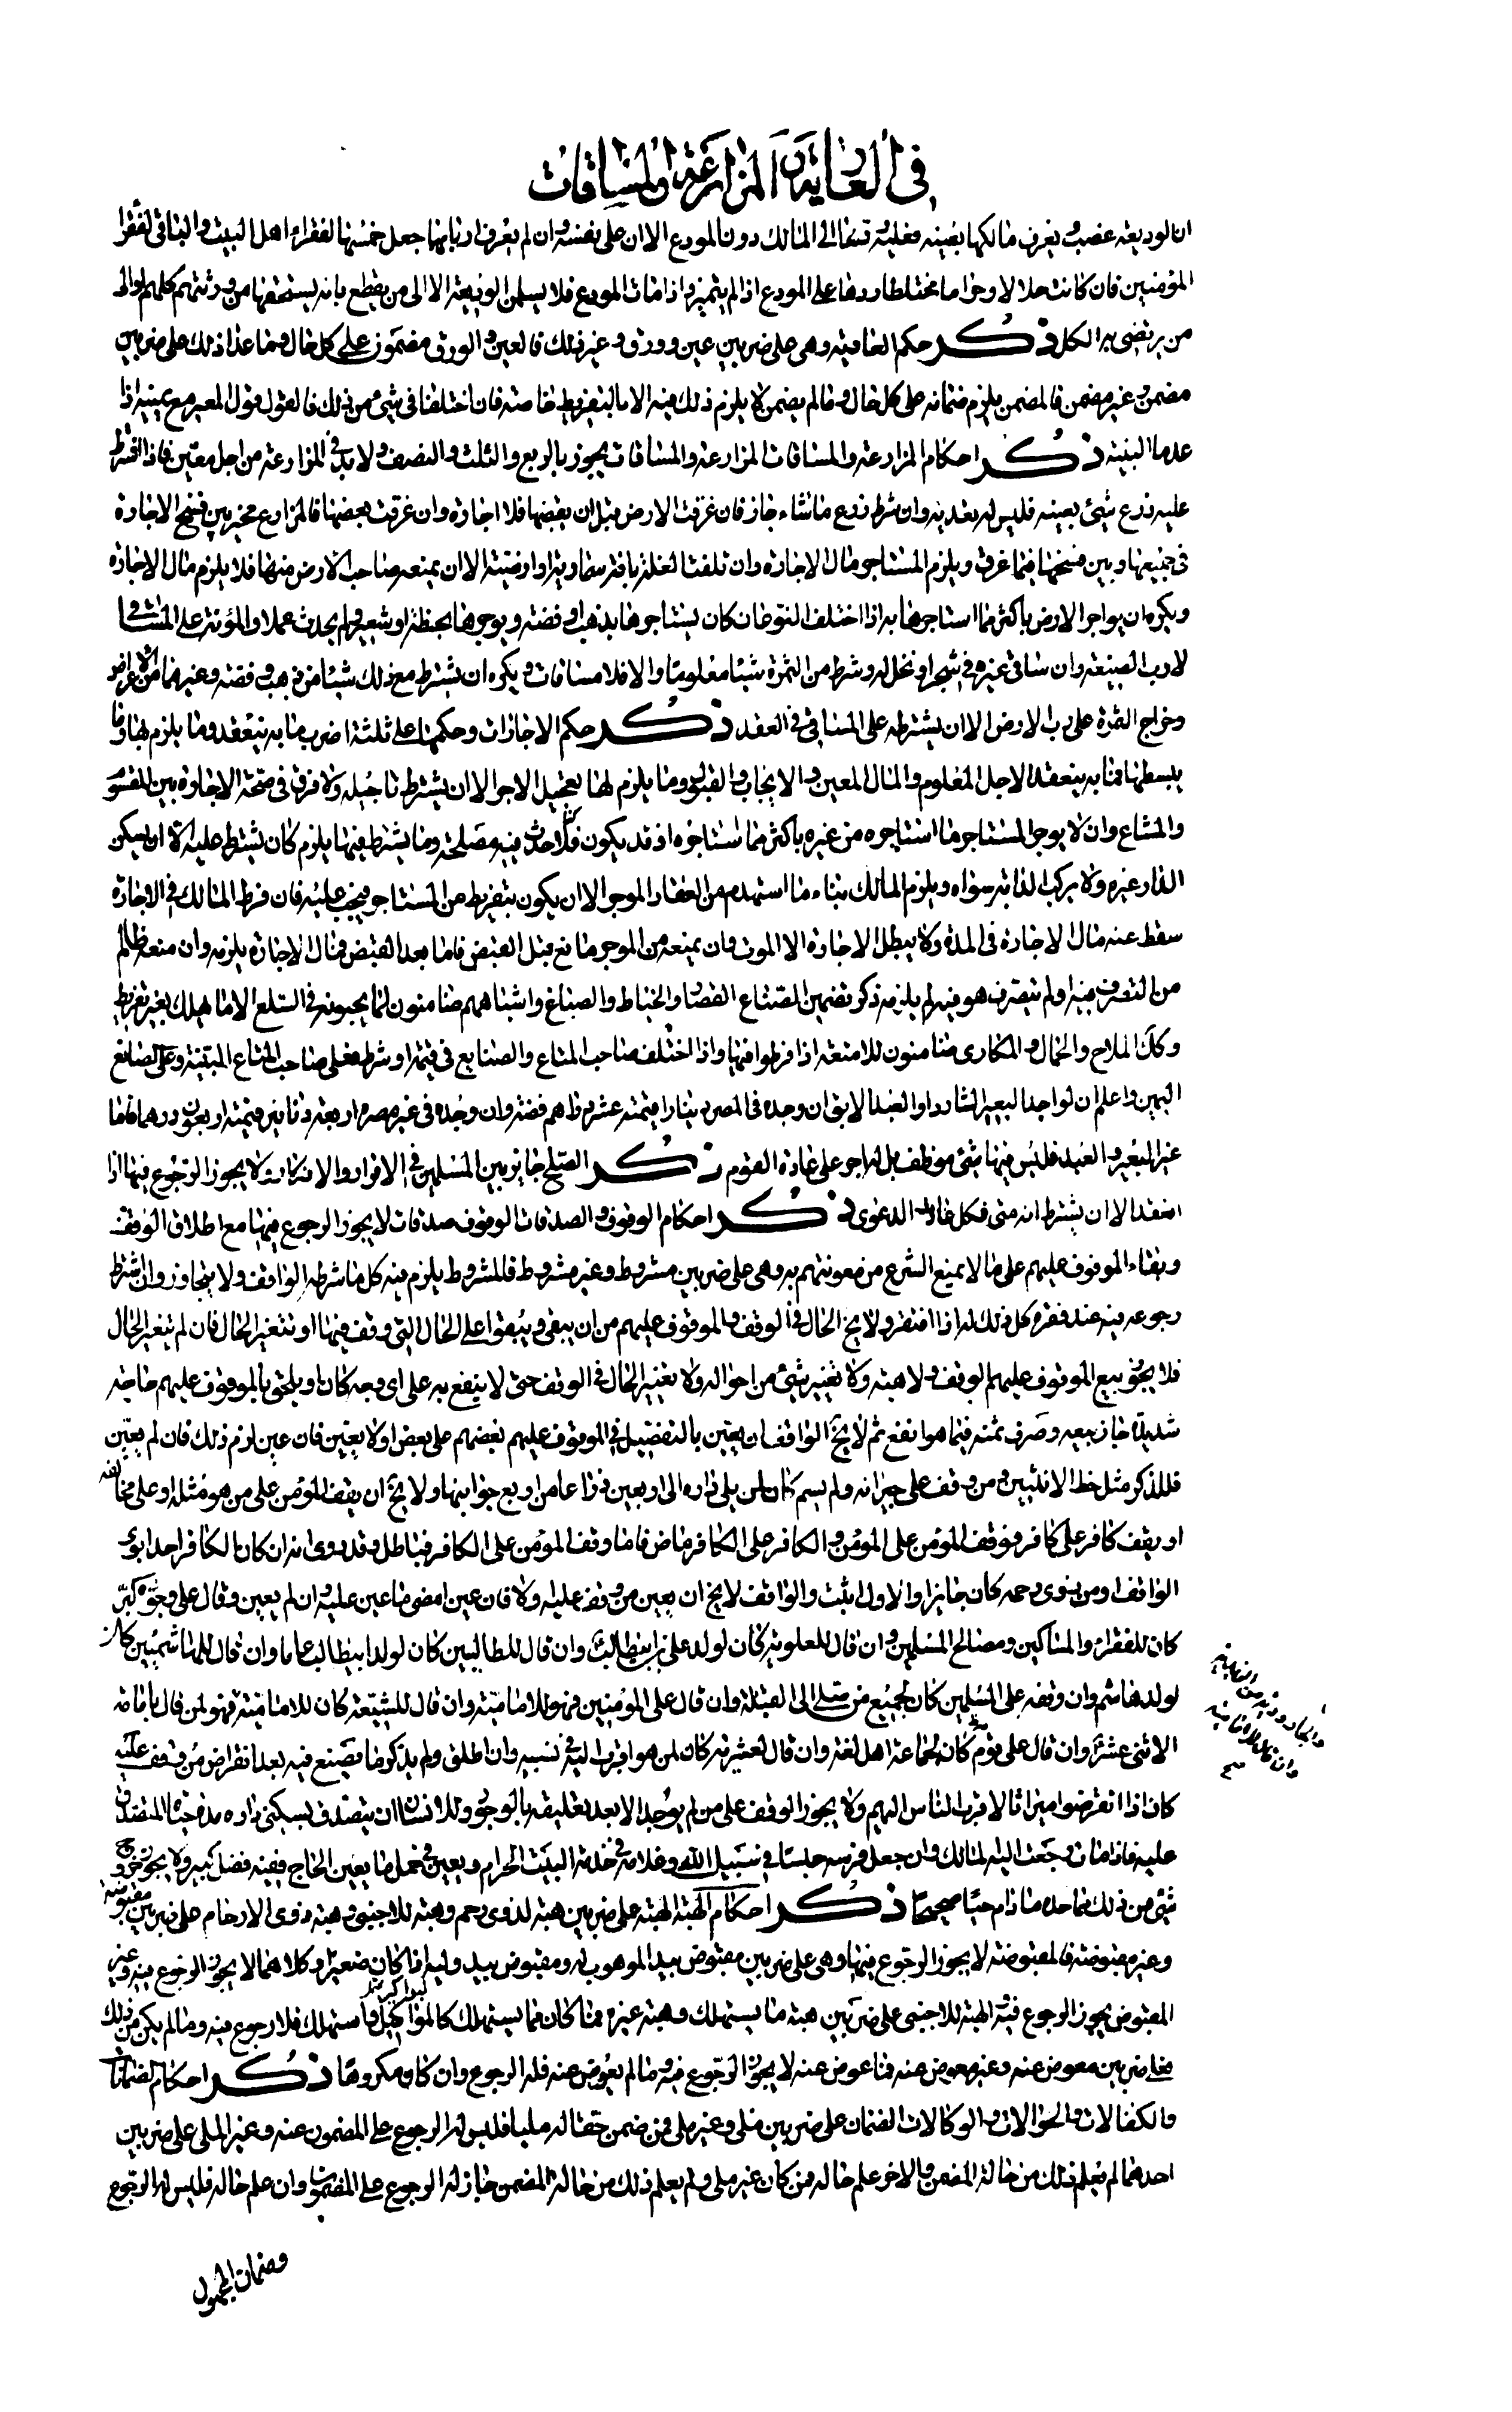 في العارية والمزارعة والمساقات
ان الوديعة غصب ويعرف مالكها بعينه فعليه تسلمها الى المالك دون المودع الا ان على نفسه وان لم يعرف اربابها جعل خمسها لفقراء اهل البيت والباقي لفقراء
المؤمنين فان كانت حلالا وحراما مختلطا ردها على المودع اذا لم يتميز واذا مات المودع فلا يسلمن الوديعة الا الى من يقطع بانه يستحقها من ورثتهم كلهم او الى
من يرتضى به الكل ذكر حكم العارية وهى على ضربين عين وورق وغير ذلك فالعين والورق مضمون على كل حال وما عدا ذلك على ضربين
مضمن وغير مضمن فالمضمن يلزم ضمانه على كل حال وما لم يضمن لا يلزم ذلك فيه الا بالتفريط خاصة فان اختلفا في شئ من ذلك فالقول قول المعير مع يمينه اذا
عدما البينة ذكر احكام المزارعة والمساقات المزارعة والمساقات يجوز بالربع والثلث والنصف ولا بد في المزارعة من اجل معين فاذا اشترط
عليه زرع شئ بعينه فليس له تعديه وان شرط زرع ما شاء جاز فان غرقت الارض قبل ان يقبضها فلا اجارة وان غرقت بعضها فالمزارع مخير بين فسخ الاجارة
في جميعها وبين فسخها فيما غرق ويلزم المستاجر مال الاجارة وان تلفت الغلة بافة سماوية او ارضية الا ان يمنعه صاحب الارض منها فلا يلزم مال الاجارة
ويكره ان يواجر الارض باكثر مما استاجرها به الا اذا اختلف النوعان كان يستاجرها بذهب او فضة ويوجرها بحنطة او شعير ولم يحدث عملا والمؤنة على المساقى
لا رب الضيعة وان ساقى غيره في شجر او نخل له وشرط من الثمرة شيئا معلوما والا فلا مساقات ويكره ان يشترط مع ذلك شيئا من ذهب وفضة وغيرهما من الاعراض
وخراج الثمرة على رب الارض الا ان يشترطه على المساقى في العقد ذكر حكم الاجارات وحكمها على ثلثة اضرب ما به ينعقد وما يلزم لها وما
يبسطها فما به ينعقد الاجل المعلوم والمال المعين والايجاب والقبول وما يلزم لها تعجيل الاجر الا ان يشترط تاجيله ولا فرق في صحة الاجارة بين المقسوم
والمشاع وان لا يوجر المستاجر ما استاجره من غيره باكثر مما استاجره اذ قد يكون قد احدث فيه مصلحة وما يشترط فيها يلزم كان يشترط عليه الا ان يسكن
الدار غيره ولا يركب الدابة سواه ويلزم المالك بناء ما استهدم من العقار الموجر الا ان يكون بتفريط من المستاجر فيجب عليه فان فرط المالك في الاجارة
سقط عنه مال الاجارة في المدة ولا يبطل الاجارة الا الموت وان يمنعه من الموجر مانع قبل القبض فاما بعد القبض فمال الاجارة يلزمه وان منعه ظالم
من التصرف فيه او لم يتصرف هو فيه لم يلزمه ذكر تضمين الصناع القصار والخياط والصباغ واشباههم ضامنون لما يجنونه في السلع الا ما هلك بغير تفريط
وكذا الملاح والحمال والمكارى ضامنون للامتعة اذا فرطوا فيها واذا اختلف صاحب المتاع والصنايع في قيمته او شرط فعلى صاحب المتاع البينة وعلى الصانع
اليمين واعلم ان لواجد البعير الشارد او العبد الابق ان وجده في المصر دينارا قيمته عشرة دراهم فضة وان وجده في غير مصره اربعة دنانير قيمته اربعون درهما فاما
غير البعير والعبد فليس فيها شئ موظف بل له اجر على عادة القوم ذكر الصلح جايز بين المسلمين في الاقرار والانكار ولا يجوز الرجوع فيها اذا
انعقدا الا ان يشترط انه متى نكل عادت الدعوى ذكر احكام الوقوف والصدقات الوقوف صدقات لا يجوز الرجوع فيها مع اطلاق الوقف
وبقاء الموقوف عليهم على ما لا يمنع الشرع من معونتهم به وهى على ضربين مشروط وغير مشروط فالمشروط يلزم فيه كل ما شرطه الواقف ولا يتجاوز وان اشترط
رجوعه فيه عند فقره كل ذلك له اذا افتقر ولا يخ الحال في الوقف والموقوف عليهم من ان يبقى ويبقوا على الحال التى وقف فيها او تتغير الحال فان لم تتغير الحال
فلا يجوز بيع الموقوف عليهم الوقف ولا هبته ولا تغيير شئ من احواله ولا تغير الحال في الوقف حتى لا ينفع به على اى وجه كان او يلحق بالموقوف عليهم حاجة
شديدة جاز بيعه وصرف ثمنه فيما هو انفع ثم لا يخ الواقف ان يعين بالتفضيل في الموقوف عليهم بعضهم على بعض او لا يعين فان عين لزم ذلك فان لم يعين
فللذكر مثل حظ الانثيين ومن وقف على جيرانه ولم يسم كان لمن يلى داره الى اربعين ذراعا من اربع جوانبها ولا يخ ان يقف المؤمن على من هو مثله او على مخالفه
او يقف كافر على كافر فوقف المؤمن على المؤمن والكافر على الكافر ماض فاما وقف المؤمن على الكافر فباطل وقد روى انه ان كان الكافر احد ابوى
الواقف او من ذوى رحمه كان جايزا والاول اثبت والواقف لا يخ ان يعين من وقف عليه اولا فان عين امضى ما عين عليه وان لم يعين وقال على وجوه البر
كان للفقراء والمساكين ومصالح المسلمين وان قال للعلوية كان لولد على بن ابيطالب وان قال للطالبيين كان لولد ابيطالب عاما وان قال للهاشميين كان
لولد هاشم وان وقفه على المسلمين كان لجميع من صلى الى القبلة وان قال على المؤمنين فهو للامامية وان قال للشيعة كان للامامية فهو لمن قال بامامة
الاثنى عشر وان قال على قوم كان لجماعة اهل لغته وان قال لعشيرته كان لمن هو اقرب اليه في نسبه وان اطلق ولم يذكر ما يصنع فيه بعد انقراض من وقف عليه
كان اذا انقرضوا ميراثا لاقرب الناس اليهم ولا يجوز الوقف على من لم يوجد الا بعد تعليقه بالوجود وللانسان ان يتصدق بسكنى داره مدة حيوة المتصدق
عليه فاذا مات رجعت اليه المالك وان جعل فرسه حبسا في سبيل الله وغلامه في خدمة البيت الحرام وبعيره في حمل ما يعين الحاج ففيه فضل كبير ولا يجوز خروج
شئ من ذلك عما حده ما دام حيا صحيحا ذكر احكام الهبة الهبة على ضربين هبة لذوى رحم وهبة للاجنبى وهبة ذوى الارحام على ضربين مقبوضة
وغير مقبوضة فالمقبوضة لا يجوز الرجوع فيها وهى على ضربين مقبوض بيد الموهوب له ومقبوض بيد وليه اذا كان صغيرا وكلاهما لا يجوز الرجوع فيه وغير
المقبوض يجوز الرجوع فيه والهبة للاجنبى على ضربين هبة ما يستهلك وهبة غيره فما كان مما يستهلك كالمواكيل واستهلك فلا رجوع فيه وما لم يكن من ذلك
فعلى ضربين معوض عنه وغير معوض عنه فما عوض عنه لا يجوز الرجوع فيه وما لم يعوض عنه فله الرجوع وان كان مكروها ذكر احكام الضمانات
والكفالات والحوالات والوكالات الضمان على ضربين ملى وغير ملى فمن ضمن حقا له مليا فليس له الرجوع على المضمون عنه وغير الملى على ضربين
احدهما لم يعلم ذلك من حاله المضمن والاخر علم حاله فمن كان غير ملى ولم يعلم ذلك من حاله المضمن جاز له الرجوع على المضمون وان علم حاله فليس له الرجوع
وضمان المجهول